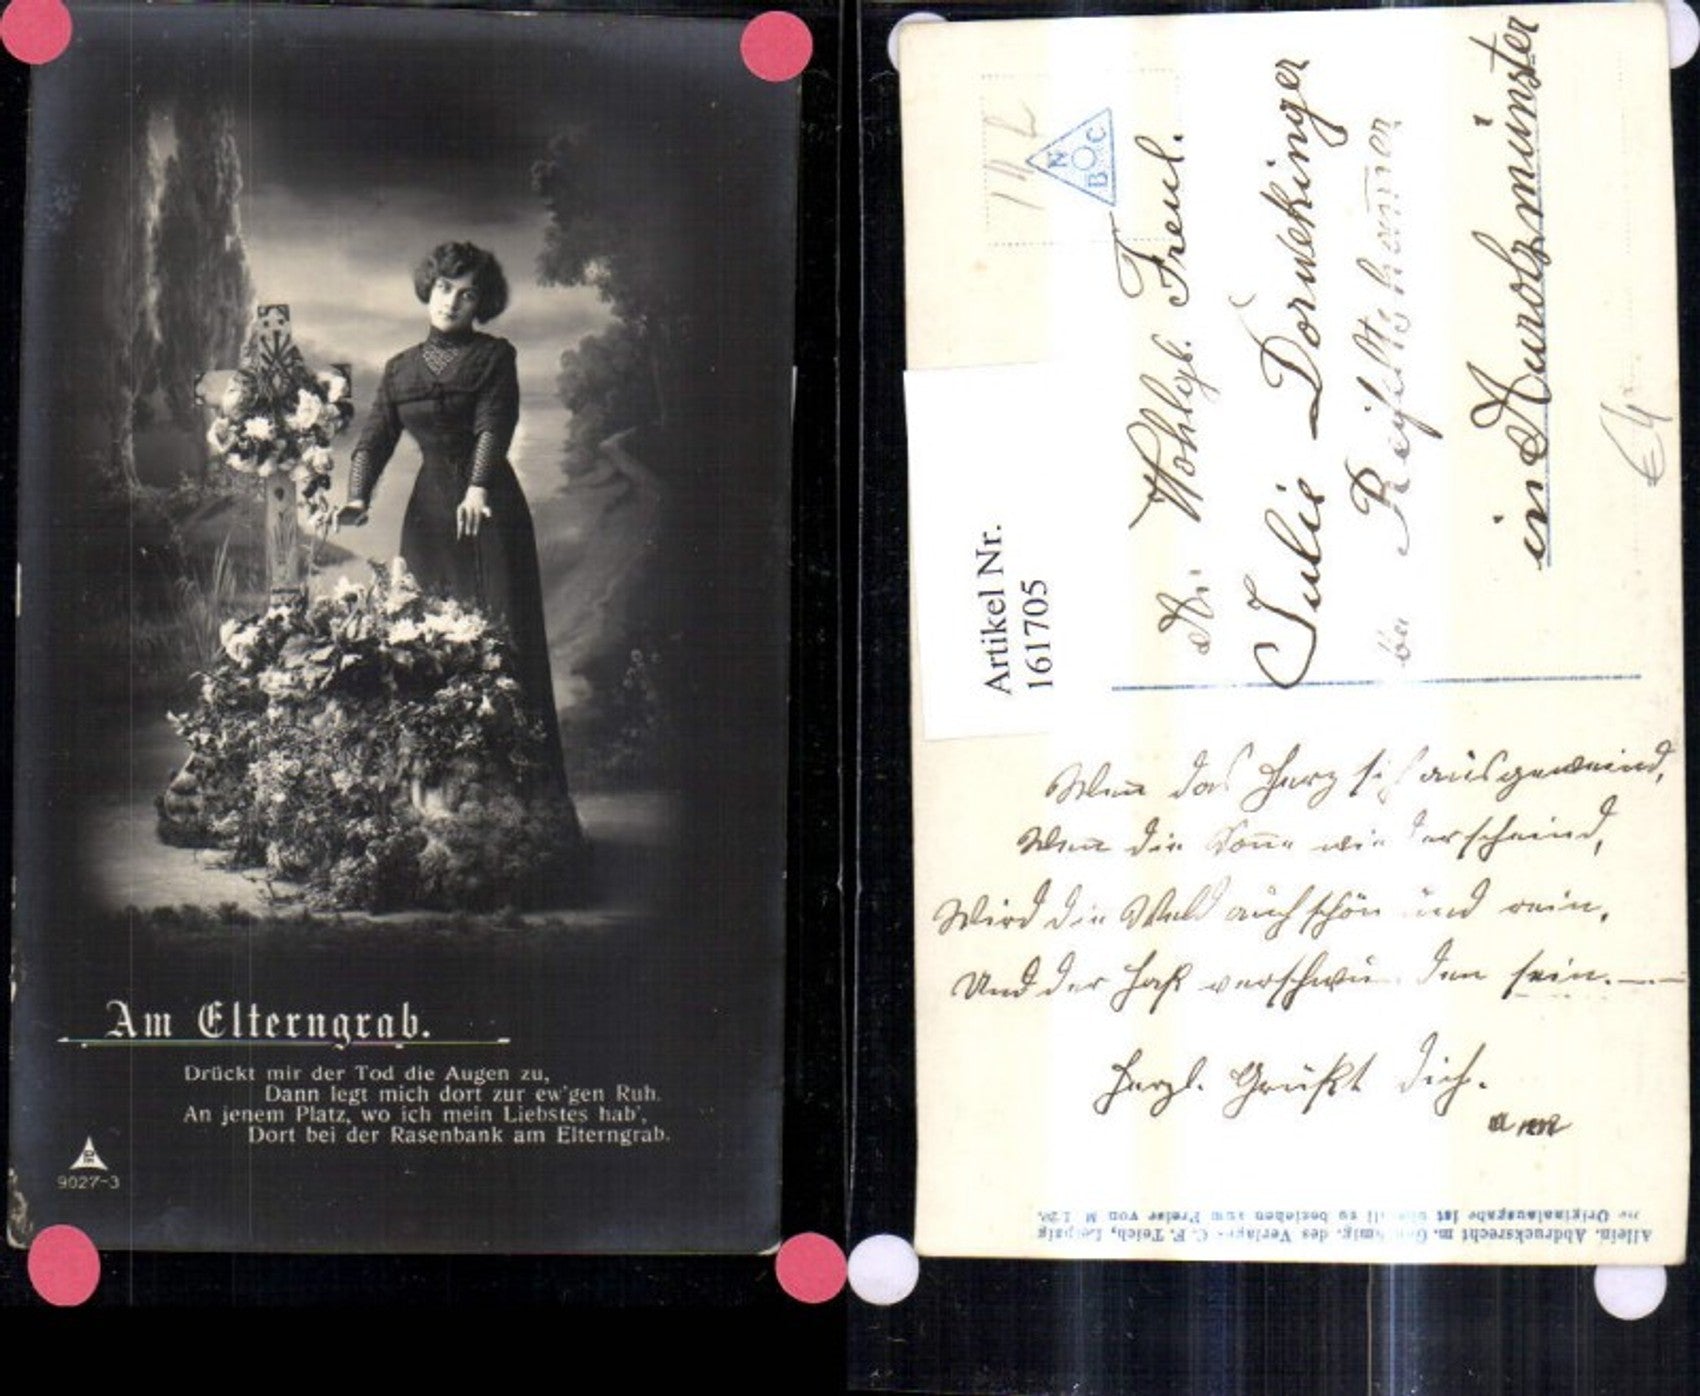 Am Elterngrab.
Drückt mir der Tod die Augen zu,
Dann legt mich dort zur ew'gen Ruh.
An jenem Platz, wo ich mein Liebstes hab',
Dort bei der Rasenbank am Elterngrab.
9027-3
N
B O C
Artikel Nr.
161705
An Wohlgb. Freul.
Julie Dorwekinger
bei
in Aurolzmünster
Wenn das Herz sich ausgeweind,
Wenn die Sonne wiedererscheind,
Wird die Welt auch schön und rein,
Und der Haß verschwunden sein.—
Herzl. Grüßt Dich.
Die Originalausgabe ist überall zu beziehen zum Preise von M 1.20.
Allein. Abdrucksrecht m. Genehmig. des Verlages C. F. Teich, Leipzig